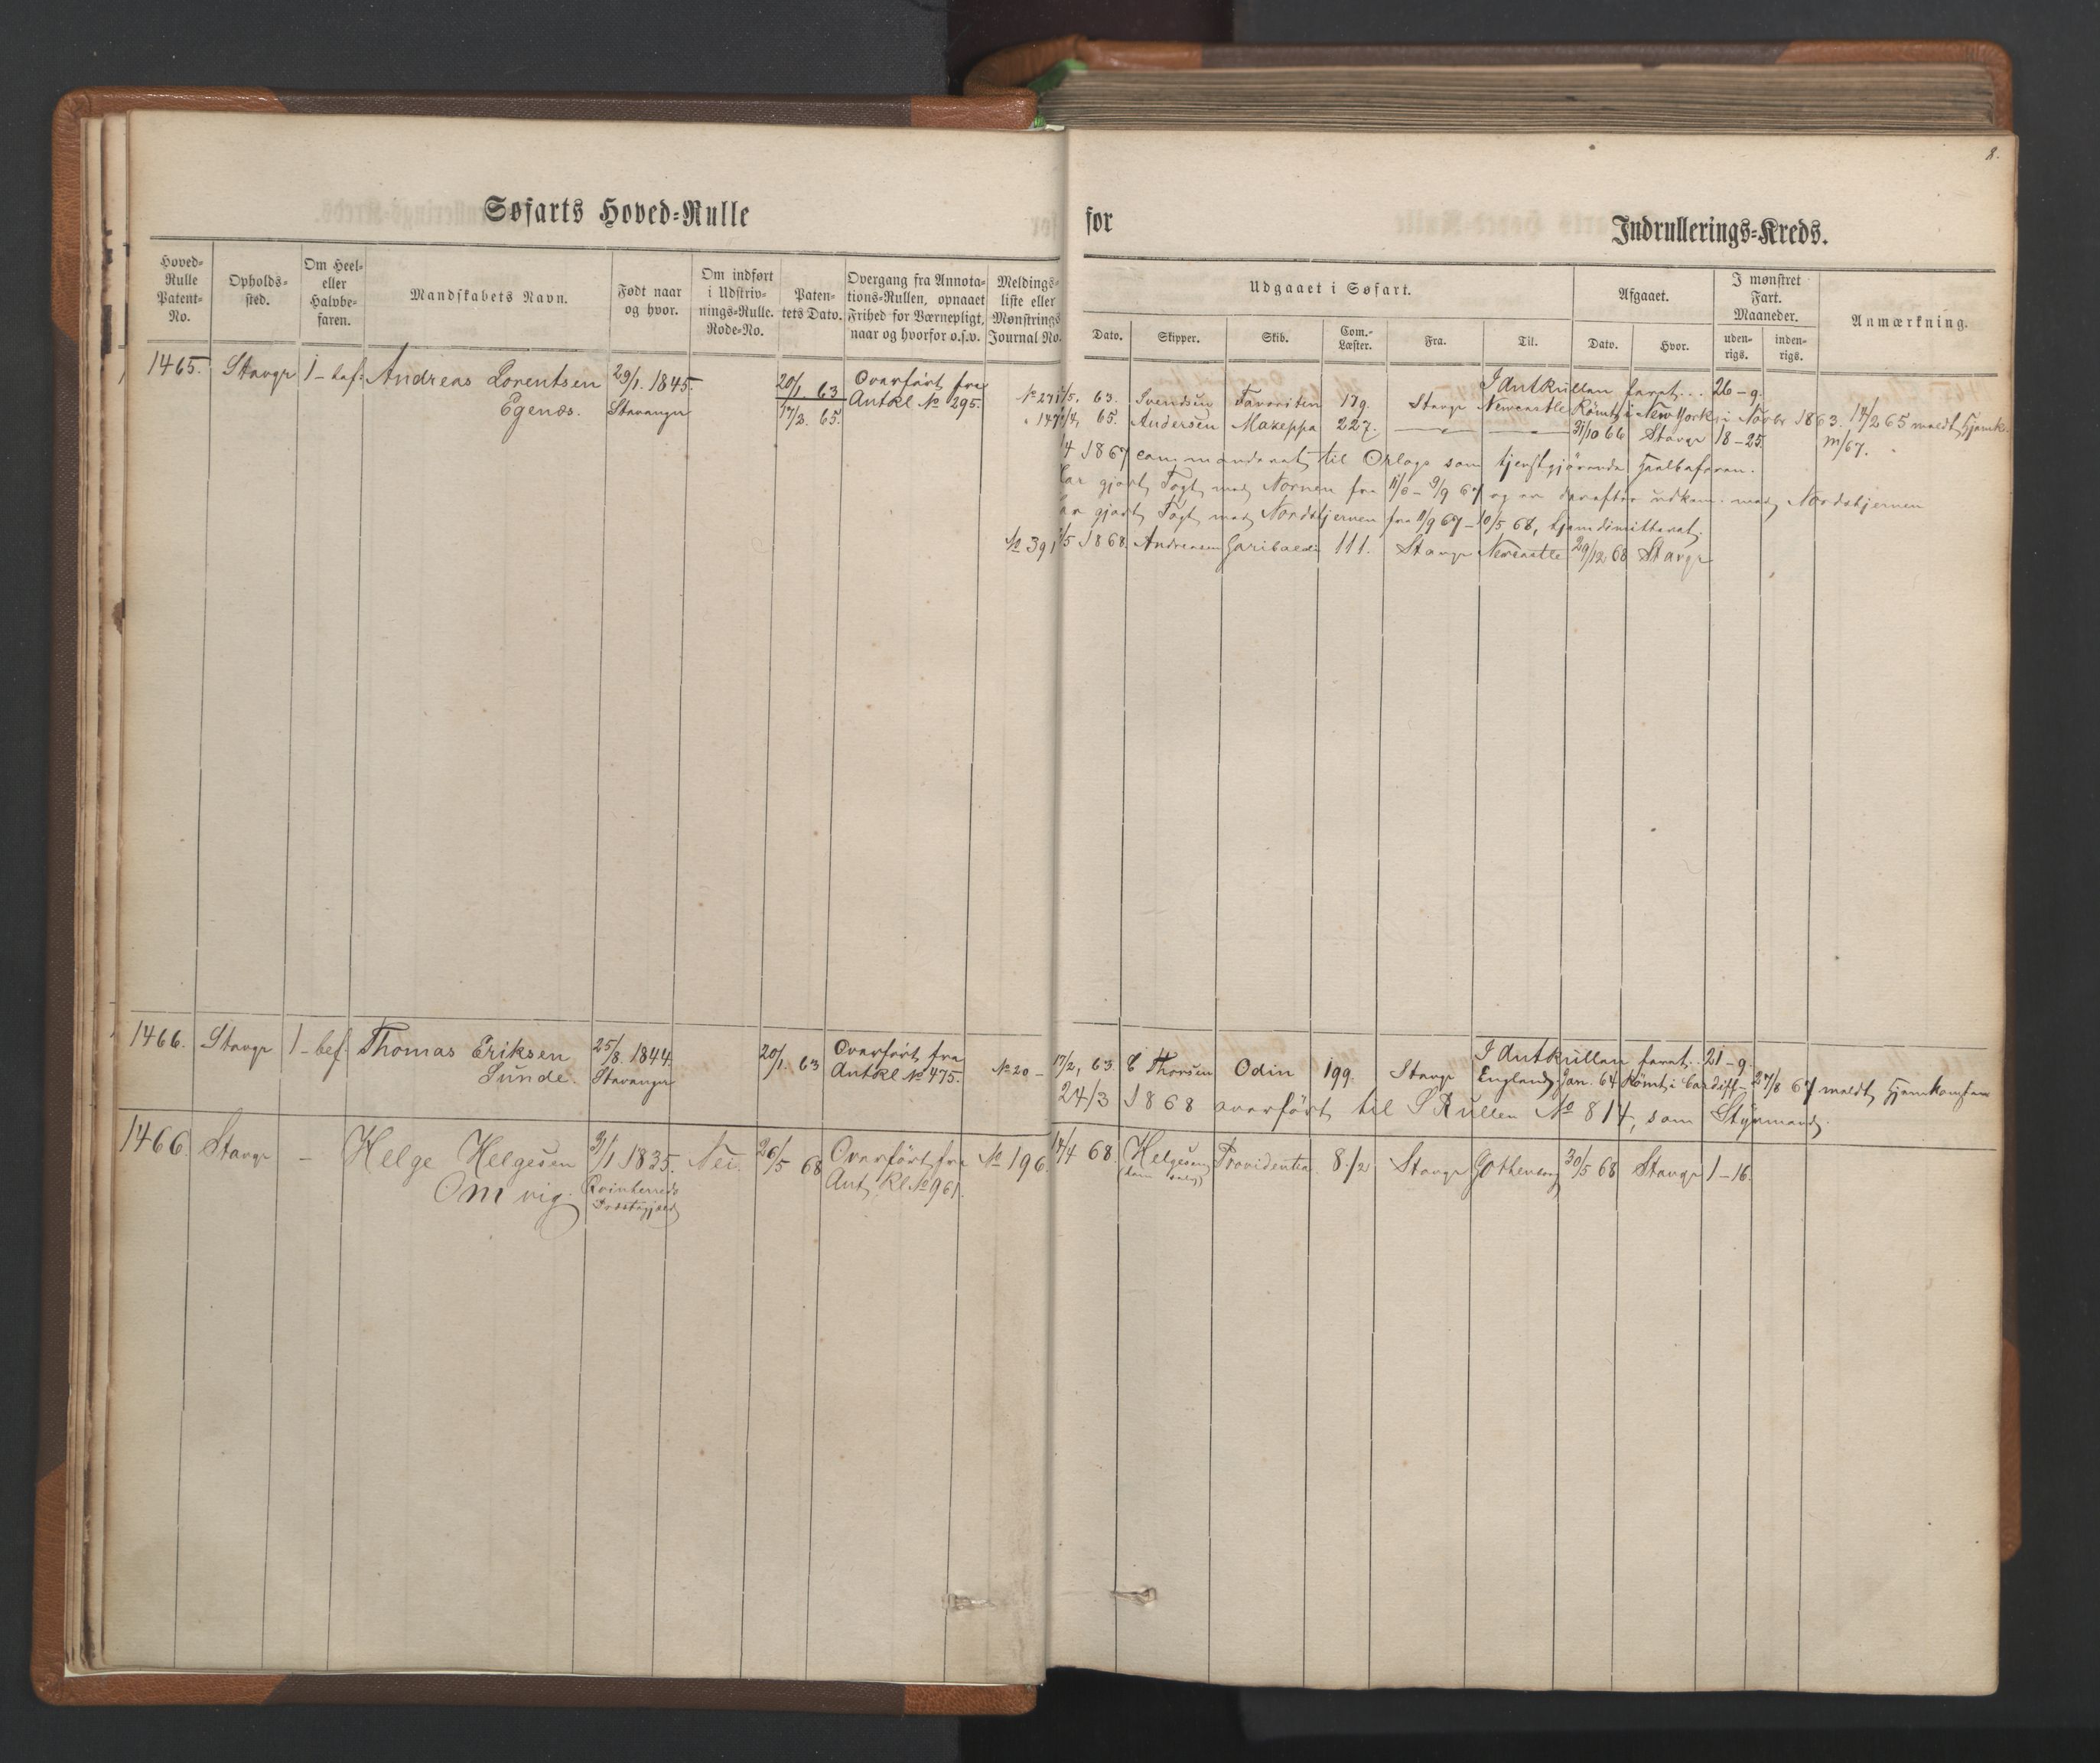 8.
Søfarts Hoved-Rulle
for
Indrullerings-Kreds.
Hoved-Rulle Patent-No.
Opholds-sted.
Om Heel- eller Halvbe-faren.
Mandskabets Navn.
Født naar og hvor.
Om indført i Udskriv-nings-Rulle. Rode-No.
Paten-tets Dato.
Overgang fra Annota-tions-Rullen, opnaaet Frihed for Værnepligt, naar og hvorfor o.s.v.
Meldings-liste eller Mønstrings Journal No.
Udgaaet i Søfart.
Dato.
Skipper.
Skib.
Com.-Læster.
Fra.
Til.
Afgaaet.
Dato.
Hvor.
I mønstret Fart. Maaneder.
uden-rigs.
inden-rigs.
Anmærkning.
1465. Stavgr 1-bef: Andreas Lorentsen 29/1. 1845. 20/1. 63 Overført fra
Egenæs. Stavanger 17/3. 65. Antkl No 295.
I Antkrullen faret... 26-9.
No 271 /5. 63. Svendsen Favoriten 179. Stavgr Newcastle Römt i New York i Novbr 1863. 14/2 65 meldt Hjemk.
147 /4 65. Andersen Mazeppa 227. — — 31/10 66 Stavgr 18-25. m/67.
/4 1867 commanderet til Orlogs som tjenstgjørende Heelbefaren.
Har gjort Togt med Nornen fra 11/6 - 9/9 67 og er derefter udkom. med Nordstjernen
Har gjort Togt med Nordstjernen fra 11/9 67 - 10/5 68, hjemdimitteret.
No 391 /5 1868. Andreasen Garibaldi 111. Stavgr Newcastle 29/12 68 Stavgr
1466. Stavgr 1-bef. Thomas Eriksen 25/8. 1844. 20/1. 63 Overført fra
Sunde. Stavanger Antkl No 475.
I Antkrullen faret.. 21-9.
No 20- 17/2, 63. C Thorsen Odin 199. Stavgr England. Jan. 64 Römt i Cardiff- 27/8 67 meldt Hjemkomsten
24/3 1868 overført til S Rullen No 814, som Styrmand.
1466. Stavgr - Helge Helgesen 9/1 1835. Nei. 26/5 68 Overført fra No 196. 14/4 68. Helgesen Providentia 8 1/2 Stavgr Gothenborg 30/5 68 Stavgr 1-16.
Omvig. Qvinherreds Ant. Kl. No 961. (ham selv)
Præstegjeld